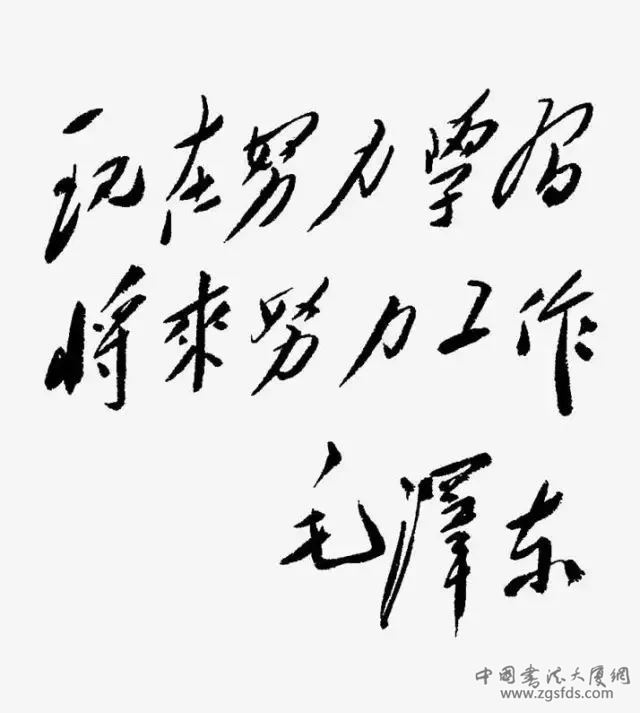 现在努力學习
将來努力工作
毛澤东
中国书法大厦網
www.zgsfds.com